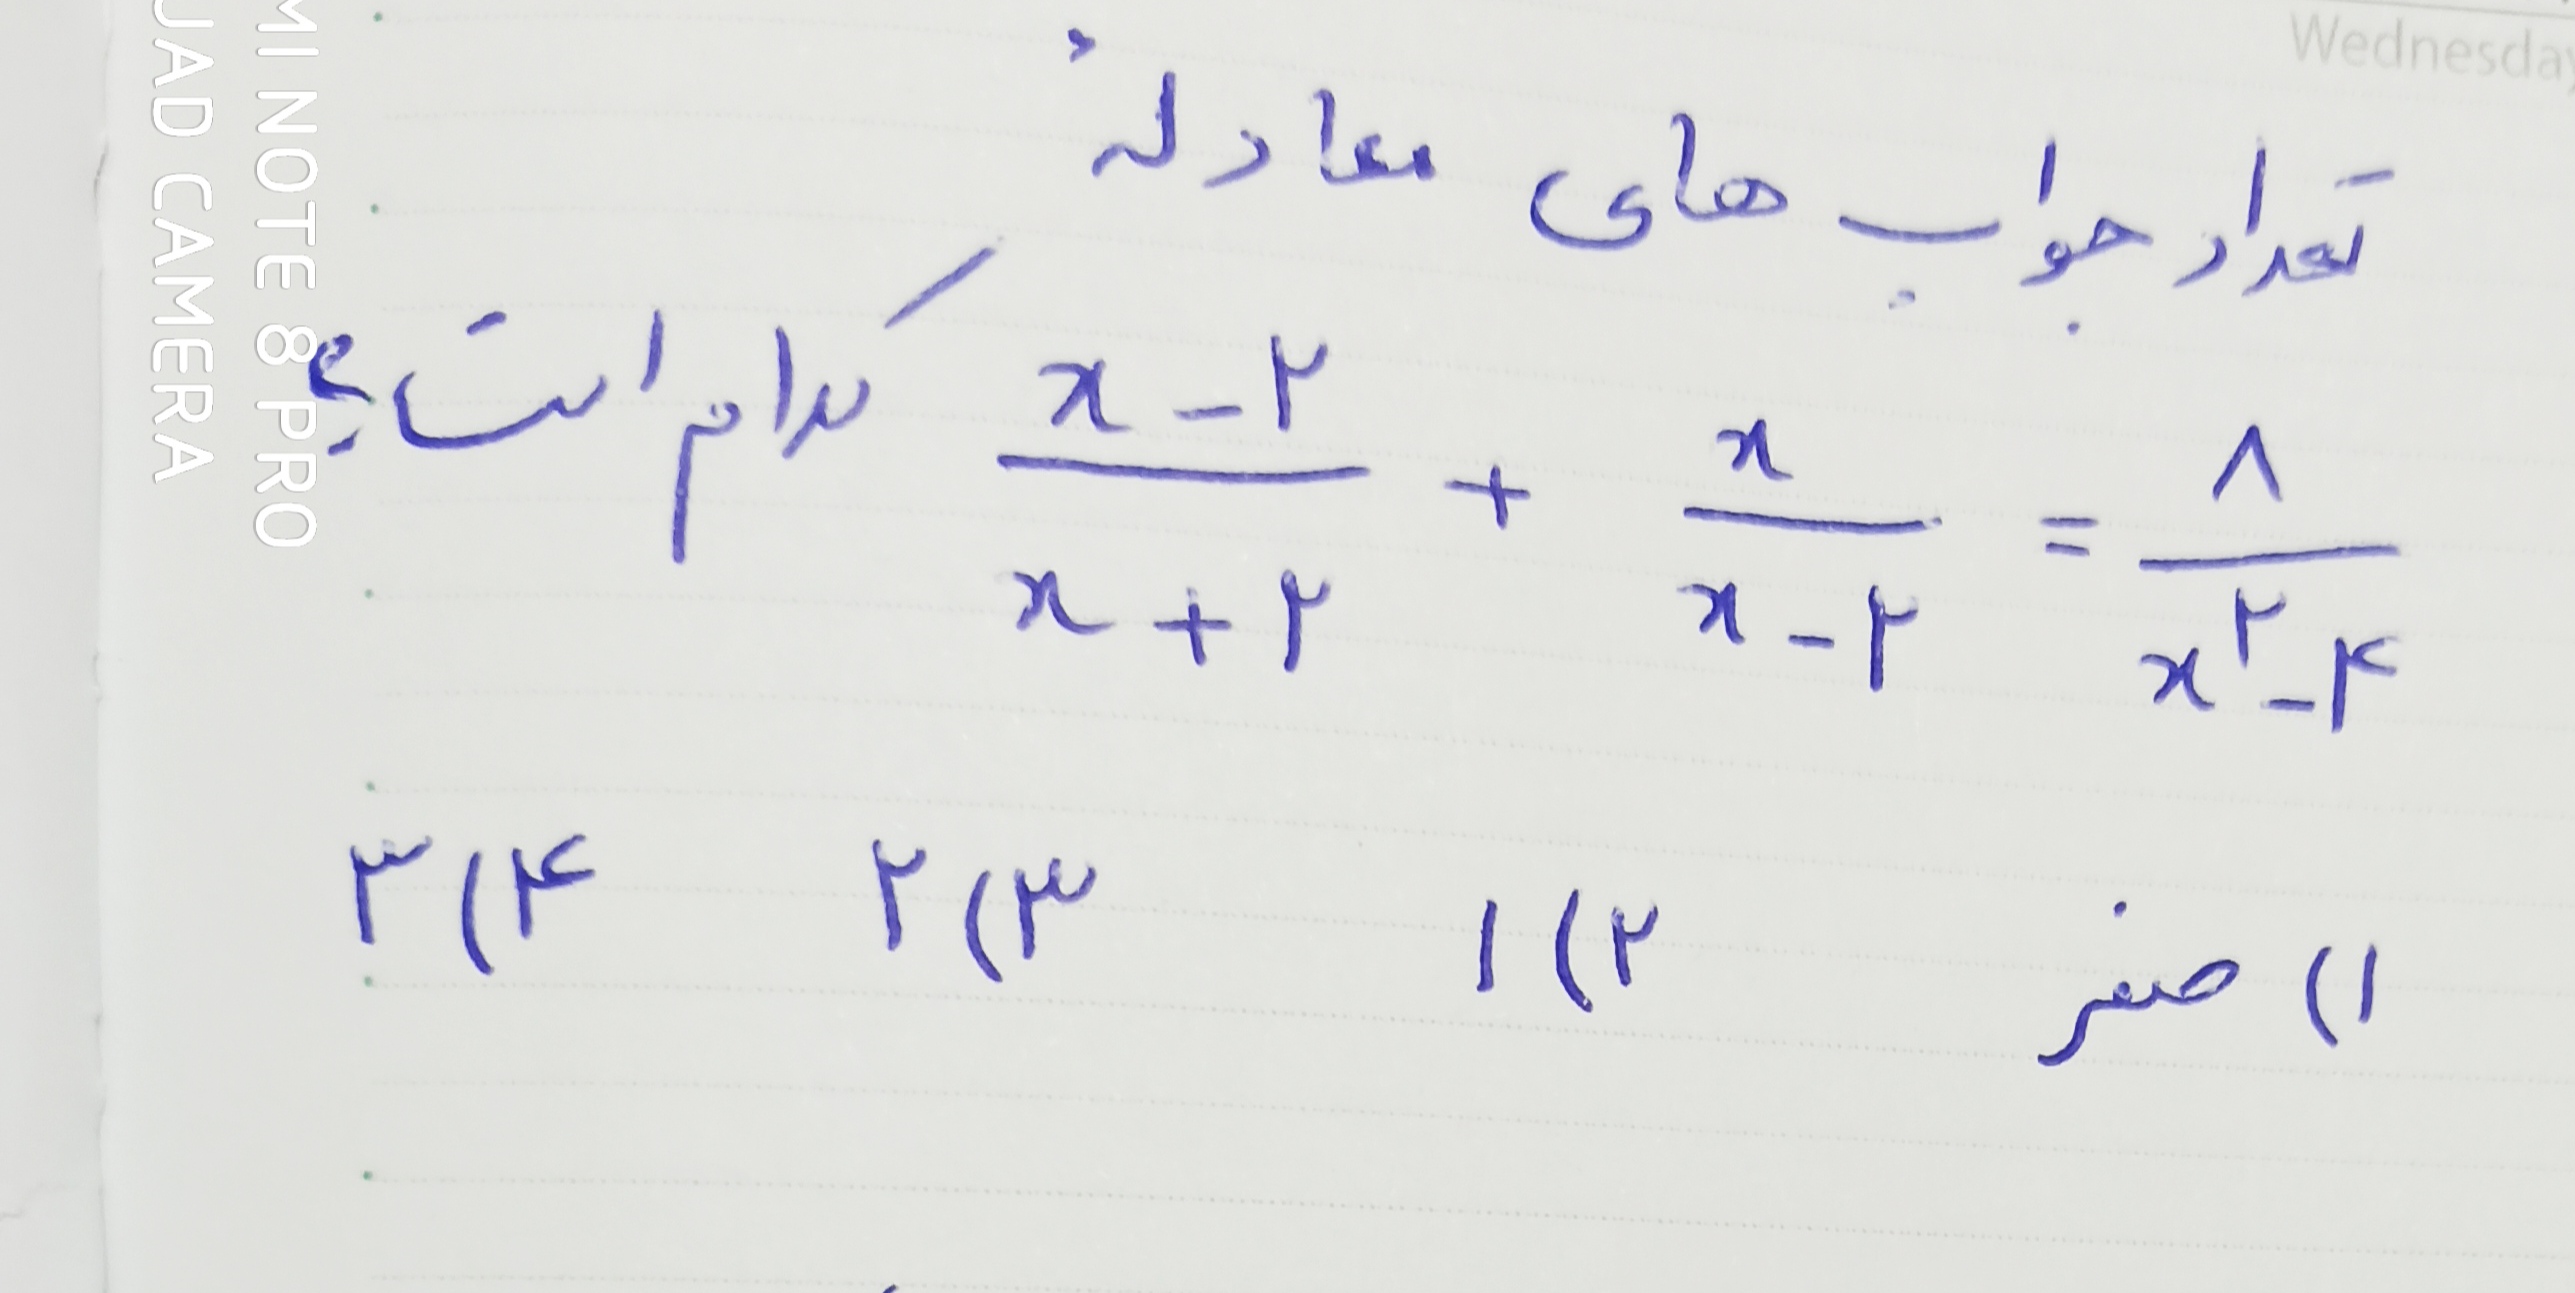 Wednesday
تعداد جواب های معادلهٔ
x-۲/x+۲ + x/x-۲ = ۸/x^۲-۴ کدام است؟
۱) صفر ۲) ۱ ۳) ۲ ۴) ۳
MI NOTE 8 PRO
UAD CAMERA